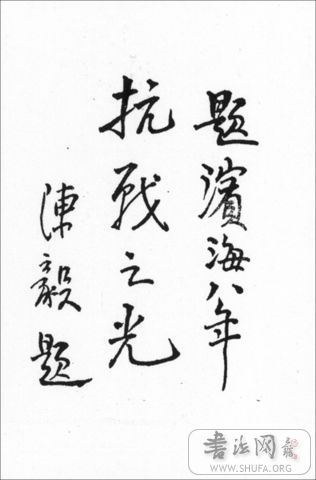 题滨海八年
抗战之光
陳毅题
书法网
WWW.SHUFA.ORG